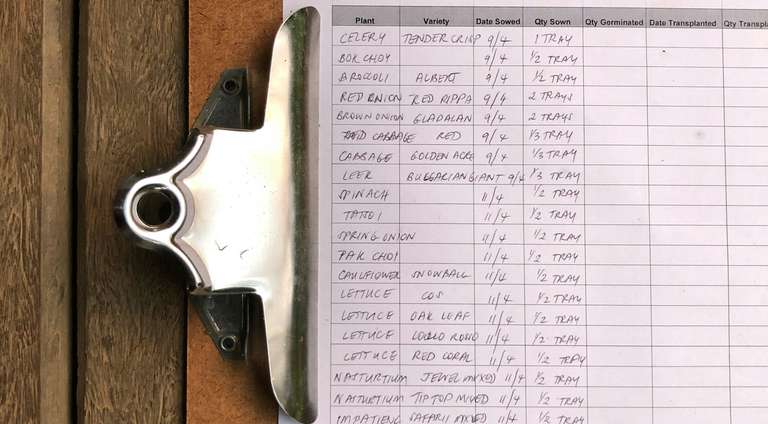 Plant Variety Date Sowed Qty Sown Qty Gorminated Date Transplanted Qty Transpla
CELERY TENDERCRISP 9/4 1 TRAY
BOK CHOY 9/4 1/2 TRAY
BROCCOLI ALBERT 9/4 1/2 TRAY
RED ONION RED RIPPA 9/4 2 TRAYS
BROWN ONION GLADALAN 9/4 2 TRAYS
CABBAGE RED 9/4 1/3 TRAY
CABBAGE GOLDEN ACRE 9/4 1/3 TRAY
LEEK BULGARIAN GIANT 9/4 1/3 TRAY
SPINACH 11/4 1/2 TRAY
TATSOI 11/4 1/2 TRAY
SPRING ONION 11/4 1/2 TRAY
PAK CHOI 11/4 1/2 TRAY
CAULIFLOWER SNOWBALL 11/4 1/2 TRAY
LETTUCE COS 11/4 1/2 TRAY
LETTUCE OAK LEAF 11/4 1/2 TRAY
LETTUCE LOLLO ROSSO 11/4 1/2 TRAY
LETTUCE RED CORAL 11/4 1/2 TRAY
NASTURTIUM JEWEL MIXED 11/4 1/2 TRAY
NASTURTIUM TIP TOP MIXED 11/4 1/2 TRAY
IMPATIENS SAFARI MIXED 11/4 1/2 TRAY